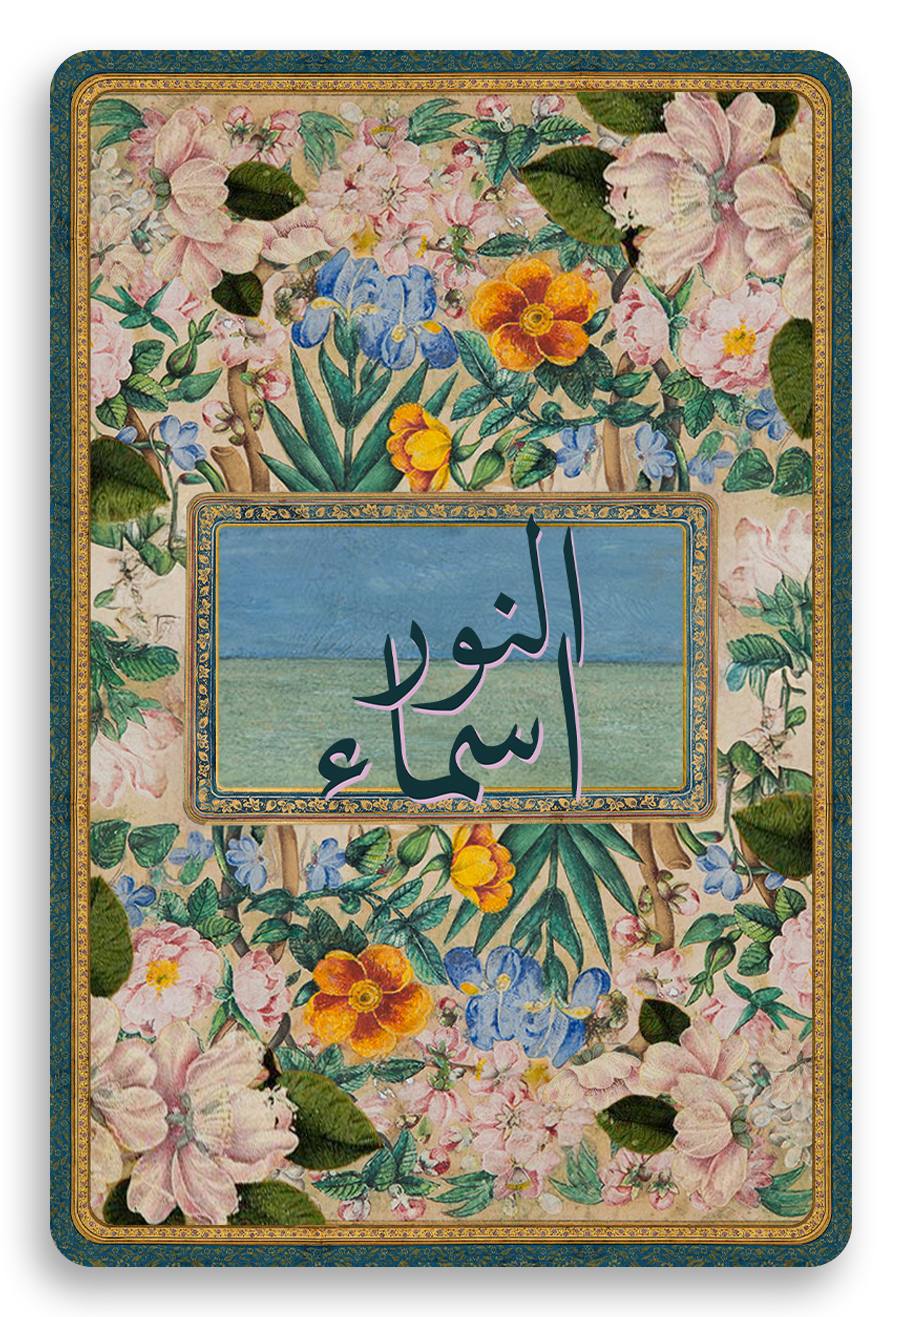 النور
اسماء